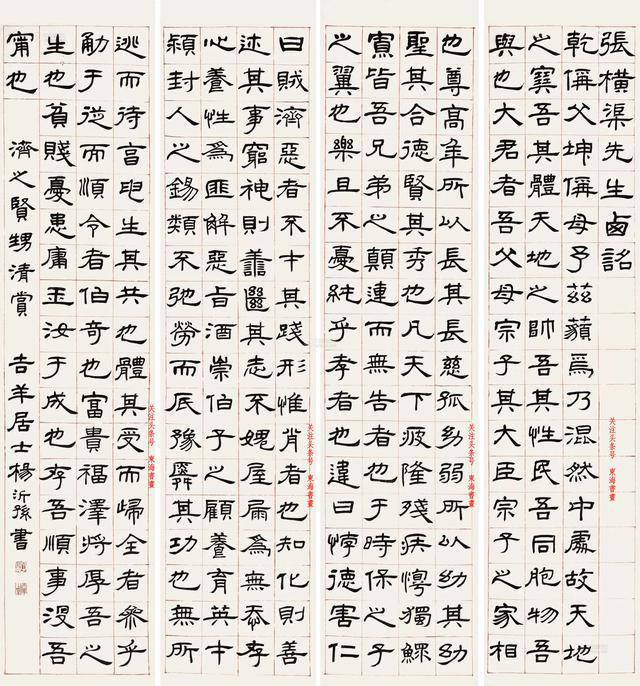 張橫渠先生卥銘
乾偁父坤偁母予茲藐焉乃混然中處故天地
之塞吾其體天地之帥吾其性民吾同胞物吾
與也大君者吾父母宗子其大臣宗子之家相
也尊高年所以長其長慈孤幼弱所以幼其幼
聖其合德賢其秀也凡天下疲隆殘疾惸獨鰥
寡皆吾兄弟之顛連而無告者也于時保之子
之翼也樂且不憂純乎孝者也違曰悖德害仁
曰賊濟惡者不才其踐形惟肖者也知化則善
述其事窮神則善繼其志不媿屋屚為無忝存
心養性為匪解惡旨酒崇伯子之顧養育英才
潁封人之錫類不弛勞而厎豫舜其功也無所
逃而待亯申生其共也體其受而歸全者參乎
勈于從而順令者伯奇也富貴福澤將厚吾之
生也貧賤憂患庸玉汝于成也存吾順事沒吾
甯也
濟之賢甥清賞 吉羊居士楊沂孫書
关注头条号 東海書畫
关注头条号 東海書畫
关注头条号 東海書畫
关注头条号 東海書畫